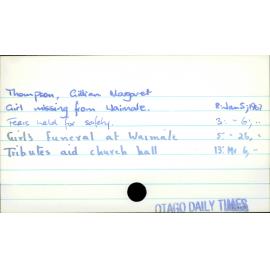 Thompson, Gillian Margaret
Girl missing from Waimate. 8: Jan 5, 1967
Fears held for safety. 3: - 6, ..
Girls Funeral at Waimate 5 - 26, -
Tributes aid church hall 13 Mr 6, -
OTAGO DAILY TIMES